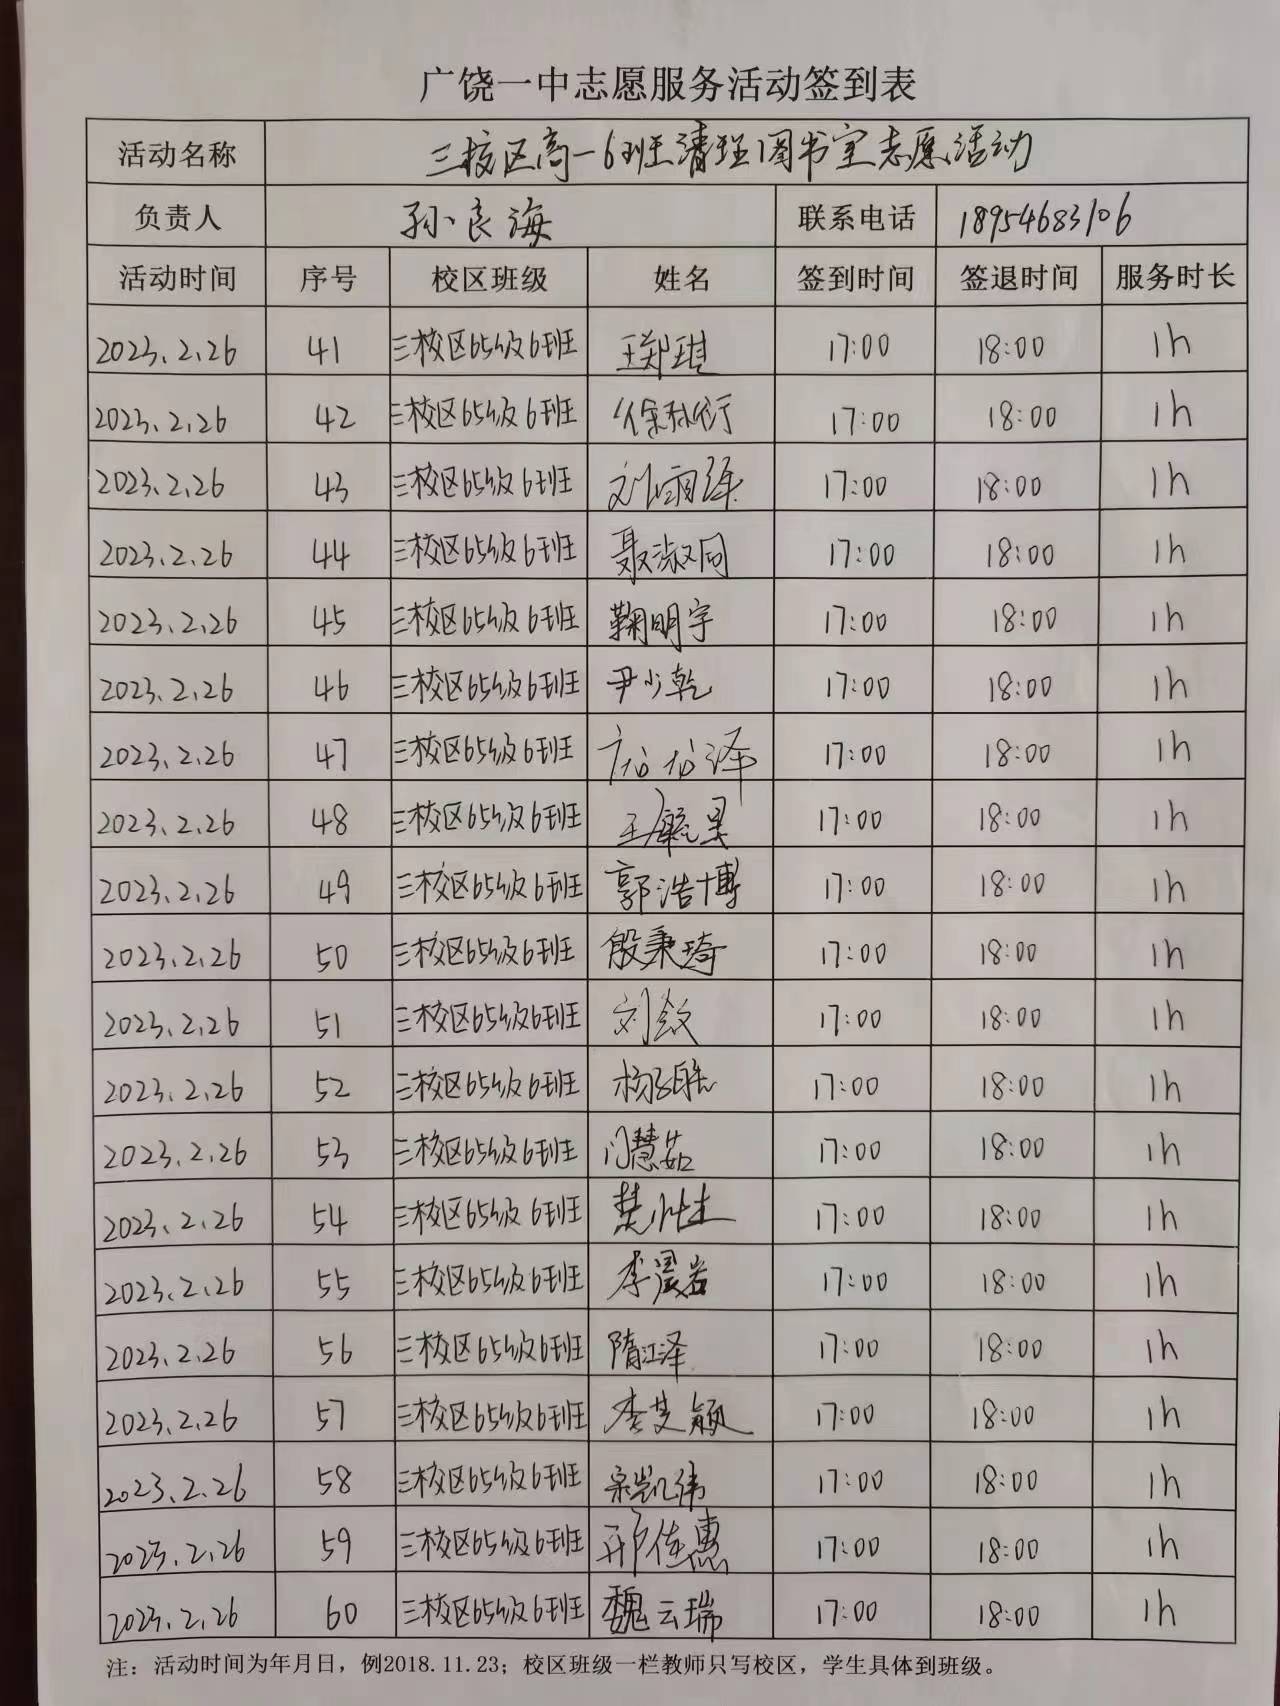 广饶一中志愿服务活动签到表
活动名称 三校区高一6班清理图书室志愿活动
负责人 孙良海 联系电话 18954683106
活动时间 序号 校区班级 姓名 签到时间 签退时间 服务时长
2023.2.26 41 三校区65级6班 王郑琪 17:00 18:00 1h
2023.2.26 42 三校区65级6班 17:00 18:00 1h
2023.2.26 43 三校区65级6班 刘雨泽 17:00 18:00 1h
2023.2.26 44 三校区65级6班 聂淑同 17:00 18:00 1h
2023.2.26 45 三校区65级6班 鞠明宇 17:00 18:00 1h
2023.2.26 46 三校区65级6班 尹少乾 17:00 18:00 1h
2023.2.26 47 三校区65级6班 17:00 18:00 1h
2023.2.26 48 三校区65级6班 17:00 18:00 1h
2023.2.26 49 三校区65级6班 郭浩博 17:00 18:00 1h
2023.2.26 50 三校区65级6班 殷秉琦 17:00 18:00 1h
2023.2.26 51 三校区65级6班 17:00 18:00 1h
2023.2.26 52 三校区65级6班 17:00 18:00 1h
2023.2.26 53 三校区65级6班 门慧茹 17:00 18:00 1h
2023.2.26 54 三校区65级6班 17:00 18:00 1h
2023.2.26 55 三校区65级6班 李晨岩 17:00 18:00 1h
2023.2.26 56 三校区65级6班 隋江泽 17:00 18:00 1h
2023.2.26 57 三校区65级6班 李芝颖 17:00 18:00 1h
2023.2.26 58 三校区65级6班 宋凯伟 17:00 18:00 1h
2023.2.26 59 三校区65级6班 邢佳惠 17:00 18:00 1h
2023.2.26 60 三校区65级6班 魏云瑞 17:00 18:00 1h
注：活动时间为年月日，例2018.11.23；校区班级一栏教师只写校区，学生具体到班级。